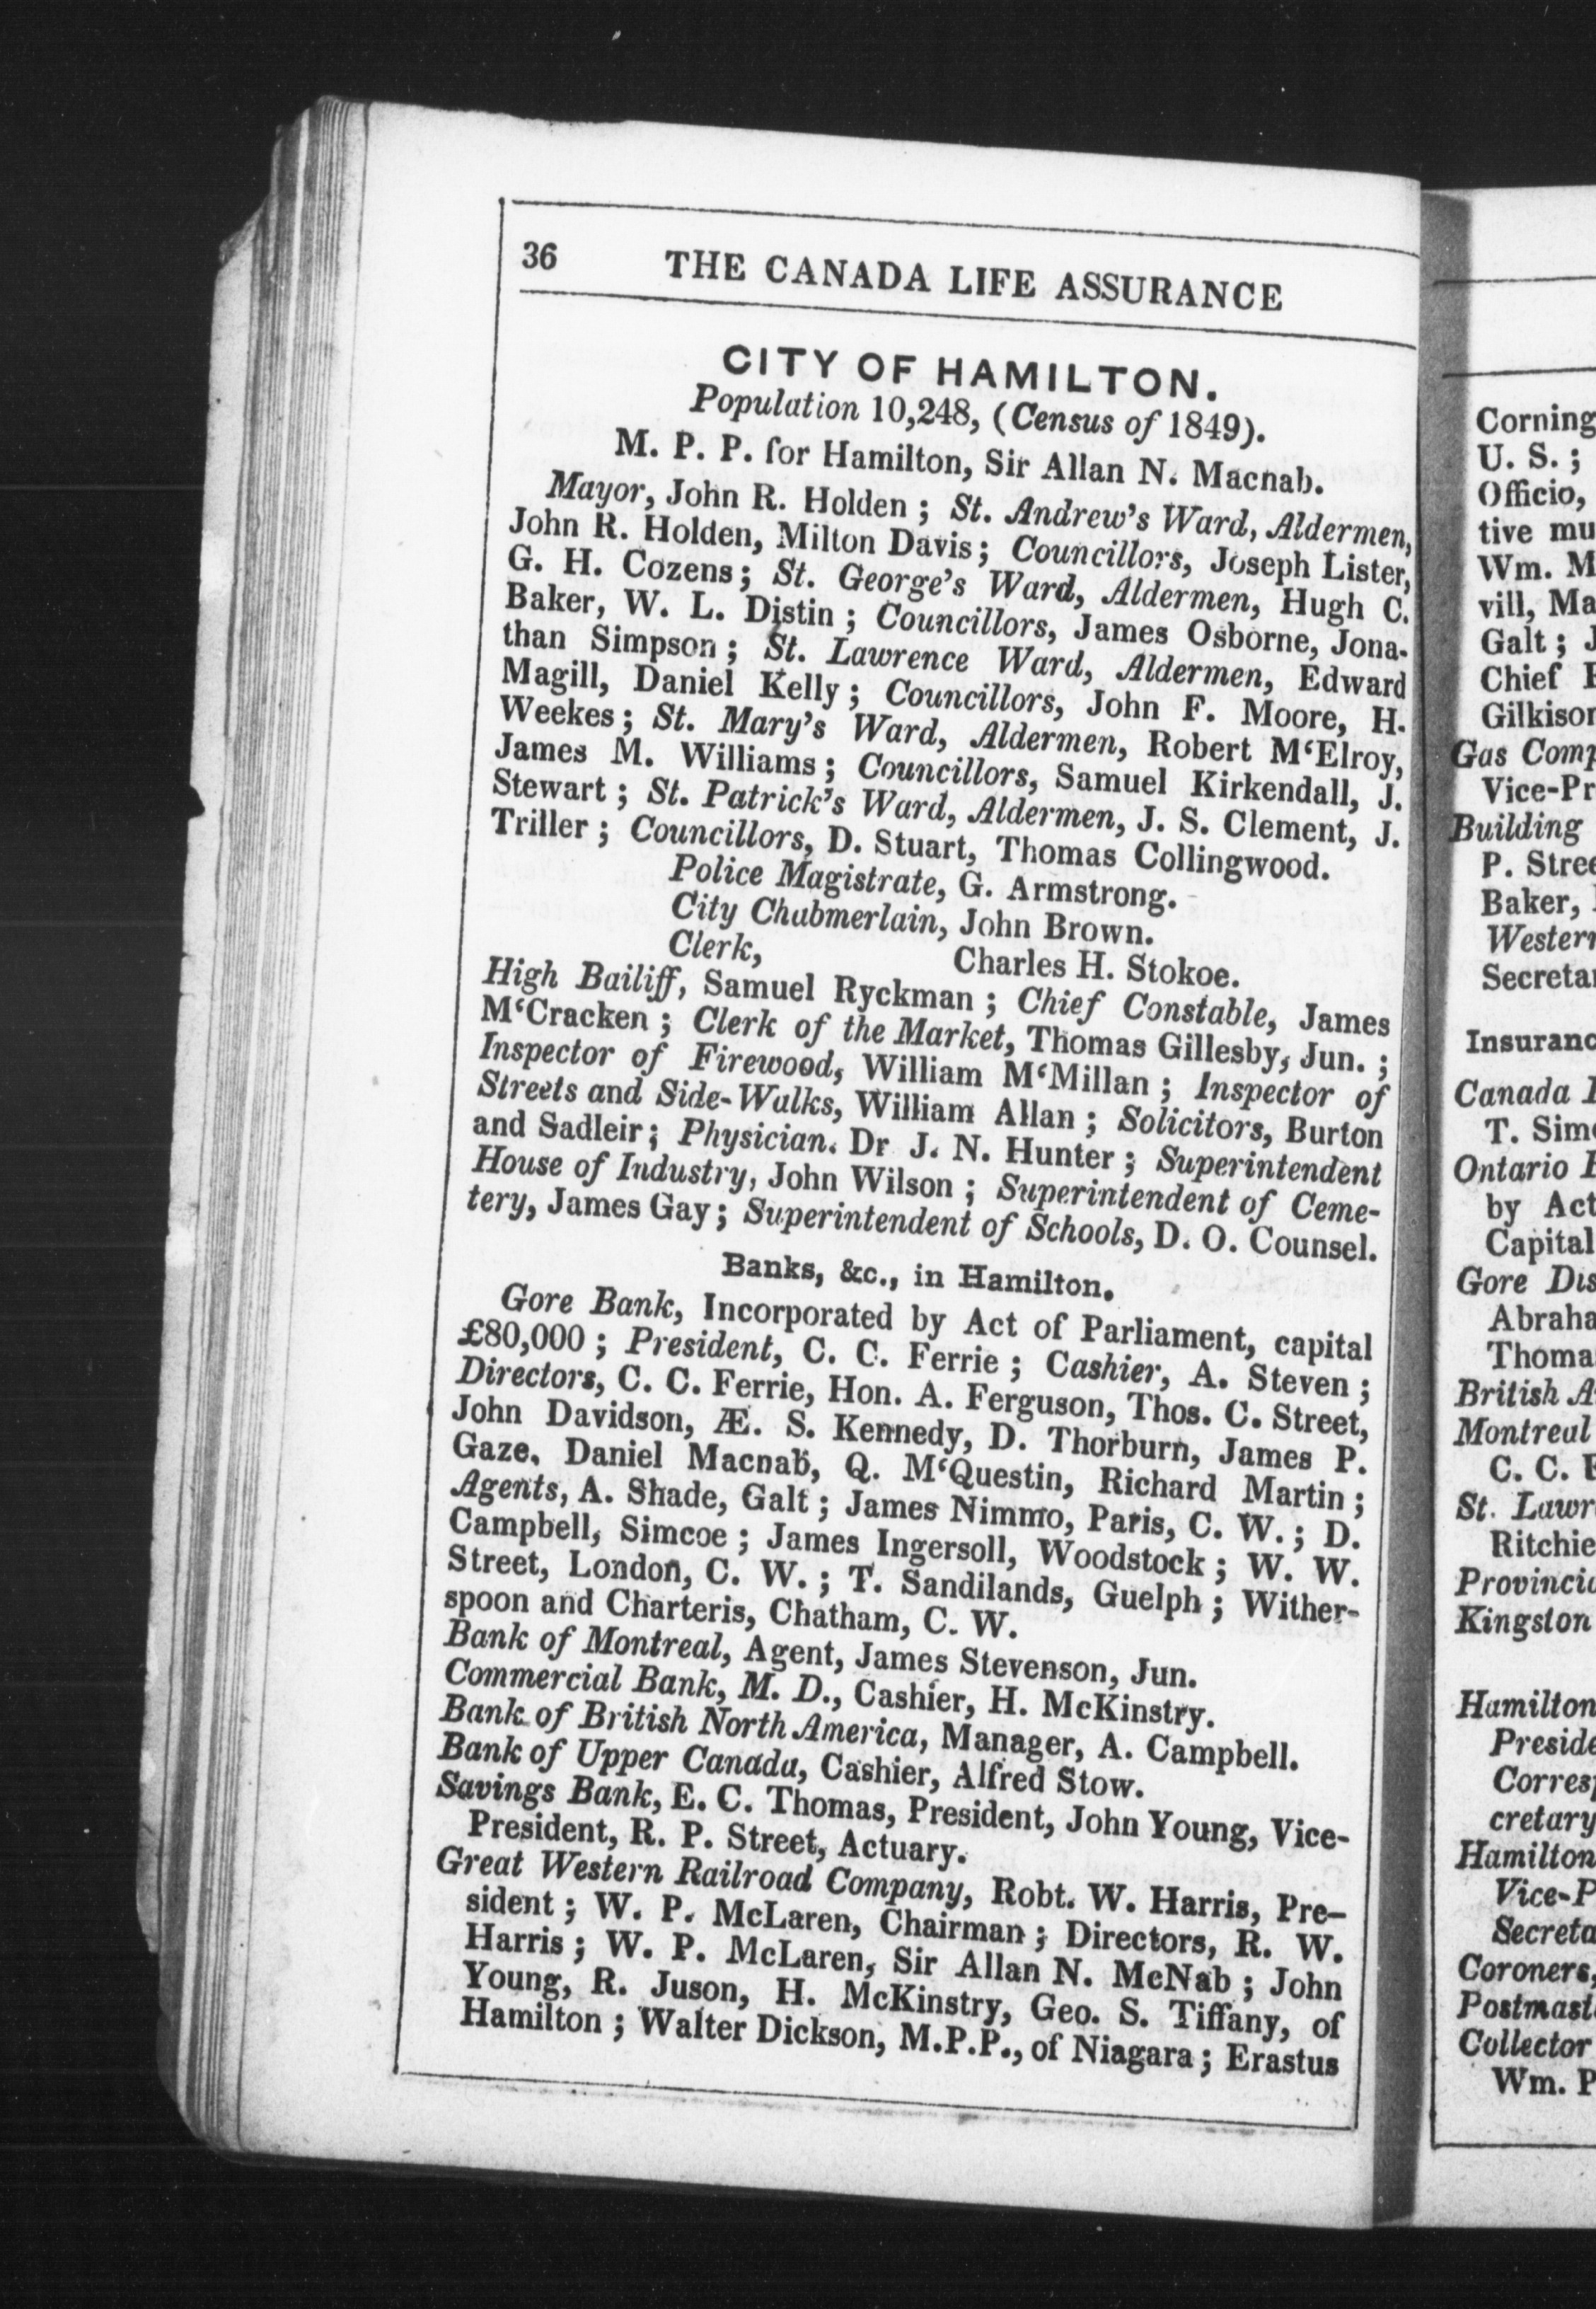 36 THE CANADA LIFE ASSURANCE
CITY OF HAMILTON.
Population 10,248, (Census of 1849).
M. P. P. for Hamilton, Sir Allan N. Macnab.
Mayor, John R. Holden ; St. Andrew's Ward, Aldermen,
John R. Holden, Milton Davis ; Councillors, Joseph Lister,
G. H. Cozens ; St. George's Ward, Aldermen, Hugh C.
Baker, W. L. Distin ; Councillors, James Osborne, Jona-
than Simpson ; St. Lawrence Ward, Aldermen, Edward
Magill, Daniel Kelly ; Councillors, John F. Moore, H.
Weekes ; St. Mary's Ward, Aldermen, Robert M'Elroy,
James M. Williams ; Councillors, Samuel Kirkendall, J.
Stewart ; St. Patrick's Ward, Aldermen, J. S. Clement, J.
Triller ; Councillors, D. Stuart, Thomas Collingwood.
Police Magistrate, G. Armstrong.
City Chabmerlain, John Brown.
Clerk, Charles H. Stokoe.
High Bailiff, Samuel Ryckman ; Chief Constable, James
M'Cracken ; Clerk of the Market, Thomas Gillesby, Jun. ;
Inspector of Firewood, William M'Millan ; Inspector of
Streets and Side-Walks, William Allan ; Solicitors, Burton
and Sadleir ; Physician. Dr J. N. Hunter ; Superintendent
House of Industry, John Wilson ; Superintendent of Ceme-
tery, James Gay ; Superintendent of Schools, D. O. Counsel.
Banks, &c., in Hamilton.
Gore Bank, Incorporated by Act of Parliament, capital
£80,000 ; President, C. C. Ferrie ; Cashier, A. Steven ;
Directors, C. C. Ferrie, Hon. A. Ferguson, Thos. C. Street,
John Davidson, Æ. S. Kennedy, D. Thorburn, James P.
Gaze, Daniel Macnab, Q. M'Questin, Richard Martin ;
Agents, A. Shade, Galt ; James Nimmo, Paris, C. W. ; D.
Campbell, Simcoe ; James Ingersoll, Woodstock ; W. W.
Street, London, C. W. ; T. Sandilands, Guelph ; Wither-
spoon and Charteris, Chatham, C. W.
Bank of Montreal, Agent, James Stevenson, Jun.
Commercial Bank, M. D., Cashier, H. McKinstry.
Bank of British North America, Manager, A. Campbell.
Bank of Upper Canada, Cashier, Alfred Stow.
Savings Bank, E. C. Thomas, President, John Young, Vice-
President, R. P. Street, Actuary.
Great Western Railroad Company, Robt. W. Harris, Pre-
sident ; W. P. McLaren, Chairman ; Directors, R. W.
Harris ; W. P. McLaren, Sir Allan N. McNab ; John
Young, R. Juson, H. McKinstry, Geo. S. Tiffany, of
Hamilton ; Walter Dickson, M.P.P., of Niagara ; Erastus
Corning
U. S. ;
Officio,
tive mu
Wm. M
vill, Ma
Galt ; J
Chief
Gilkison
Gas Comp
Vice-Pr
Building
P. Stree
Baker,
Western
Secretar
Insuranc
Canada
T. Sim
Ontario
by Act
Capital
Gore Dis
Abraha
Thoma
British A
Montreal
C. C. F
St. Lawr
Ritchie
Provincia
Kingston
Hamilton
Preside
Corres
cretary
Hamilton
Vice-P
Secreta
Coroners,
Postmast
Collector
Wm. P